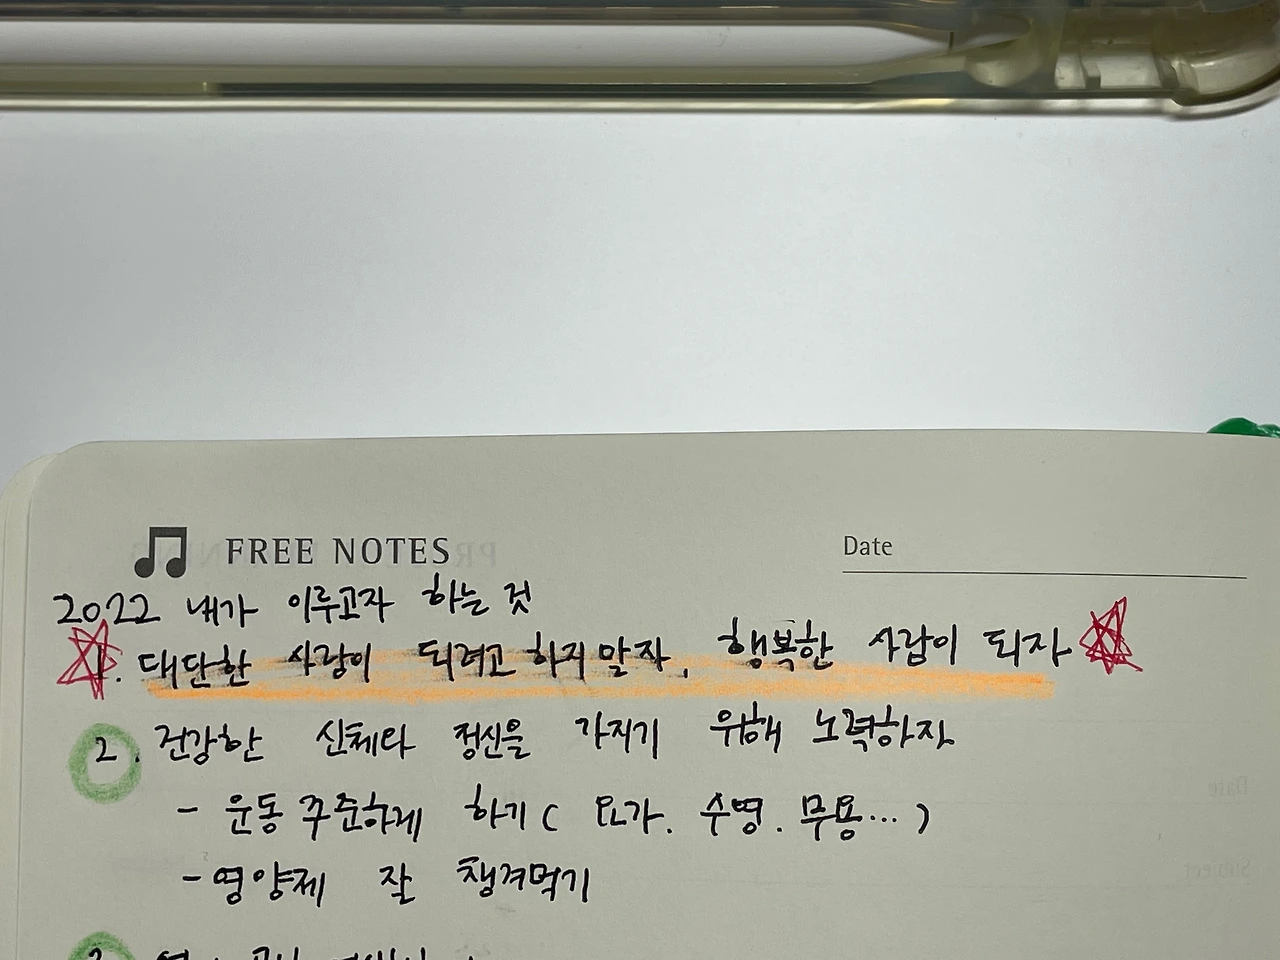 FREE NOTES
Date
2022 내가 이루고자 하는 것
1. 대단한 사람이 되려고 하지 말자. 행복한 사람이 되자
2. 건강한 신체와 정신을 가지기 위해 노력하자
- 운동 꾸준하게 하기 ( 요가. 수영. 무용... )
- 영양제 잘 챙겨먹기